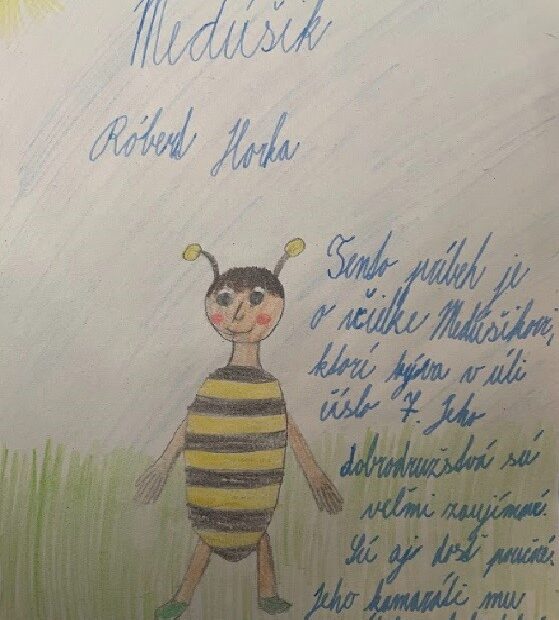 Medúšik
Róbert Horka
Tento príbeh je
o včielke Medúšikovi,
ktorí býva v úli
číslo 7. Jeho
dobrodružstvá sú
veľmi zaujímavé.
Sú aj dosť poučné.
Jeho kamaráti mu